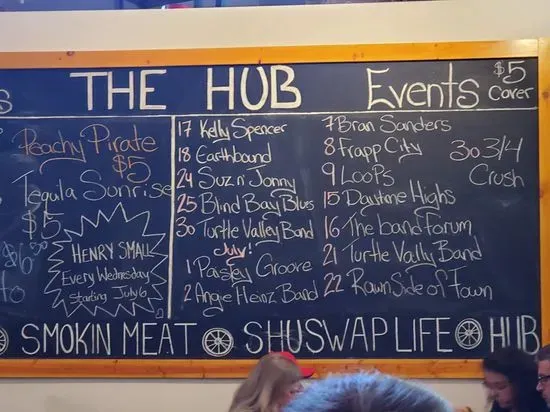 THE HUB Events $5 cover
S
Peachy Pirate
$5
Tequla Sunrise
$5
$6
to
HENRY SMALL
Every Wednesday
Starting July 6
17 Kelly Spencer
18 Earthbound
24 Suz n' Jonny
25 Blind Bay Blus
30 Turtle Valley Band
July!
1 Paisley Groove
2 Angie Heinz Band
7 Bran Sanders
8 Frapp City
9 Loops
15 Daytime Highs
16 The band Forum
21 Turtle Vally Band
22 Rawn Side of Town
30 3/4
Crush
SMOKIN MEAT SHUSWAP LIFE HUB